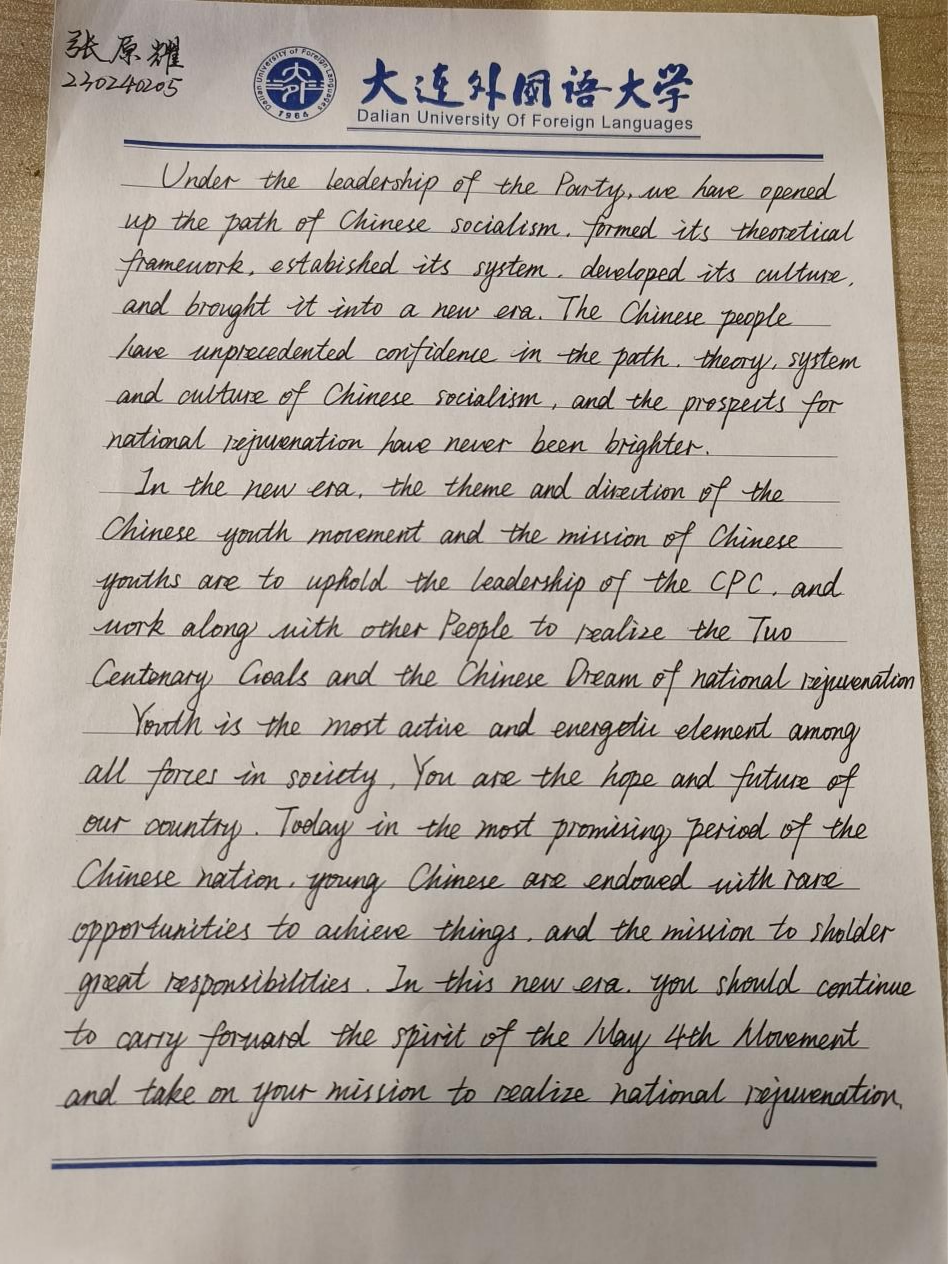 张原耀
230240205
Dalian University of Foreign Languages
1964
大连外国语大学
Dalian University Of Foreign Languages
Under the leadership of the Party, we have opened
up the path of Chinese socialism, formed its theoretical
framework, estabished its system, developed its culture,
and brought it into a new era. The Chinese people
have unprecedented confidence in the path, theory, system
and culture of Chinese socialism, and the prospects for
national rejuvenation have never been brighter.
In the new era, the theme and direction of the
Chinese youth movement and the mission of Chinese
youths are to uphold the leadership of the CPC, and
work along with other People to realize the Two
Centenary Goals and the Chinese Dream of national rejuvenation
Youth is the most active and energetic element among
all forces in society. You are the hope and future of
our country. Today in the most promising period of the
Chinese nation, young Chinese are endowed with rare
opportunities to achieve things, and the mission to sholder
great responsibilities. In this new era, you should continue
to carry forward the spirit of the May 4th Movement
and take on your mission to realize national rejuvenation.